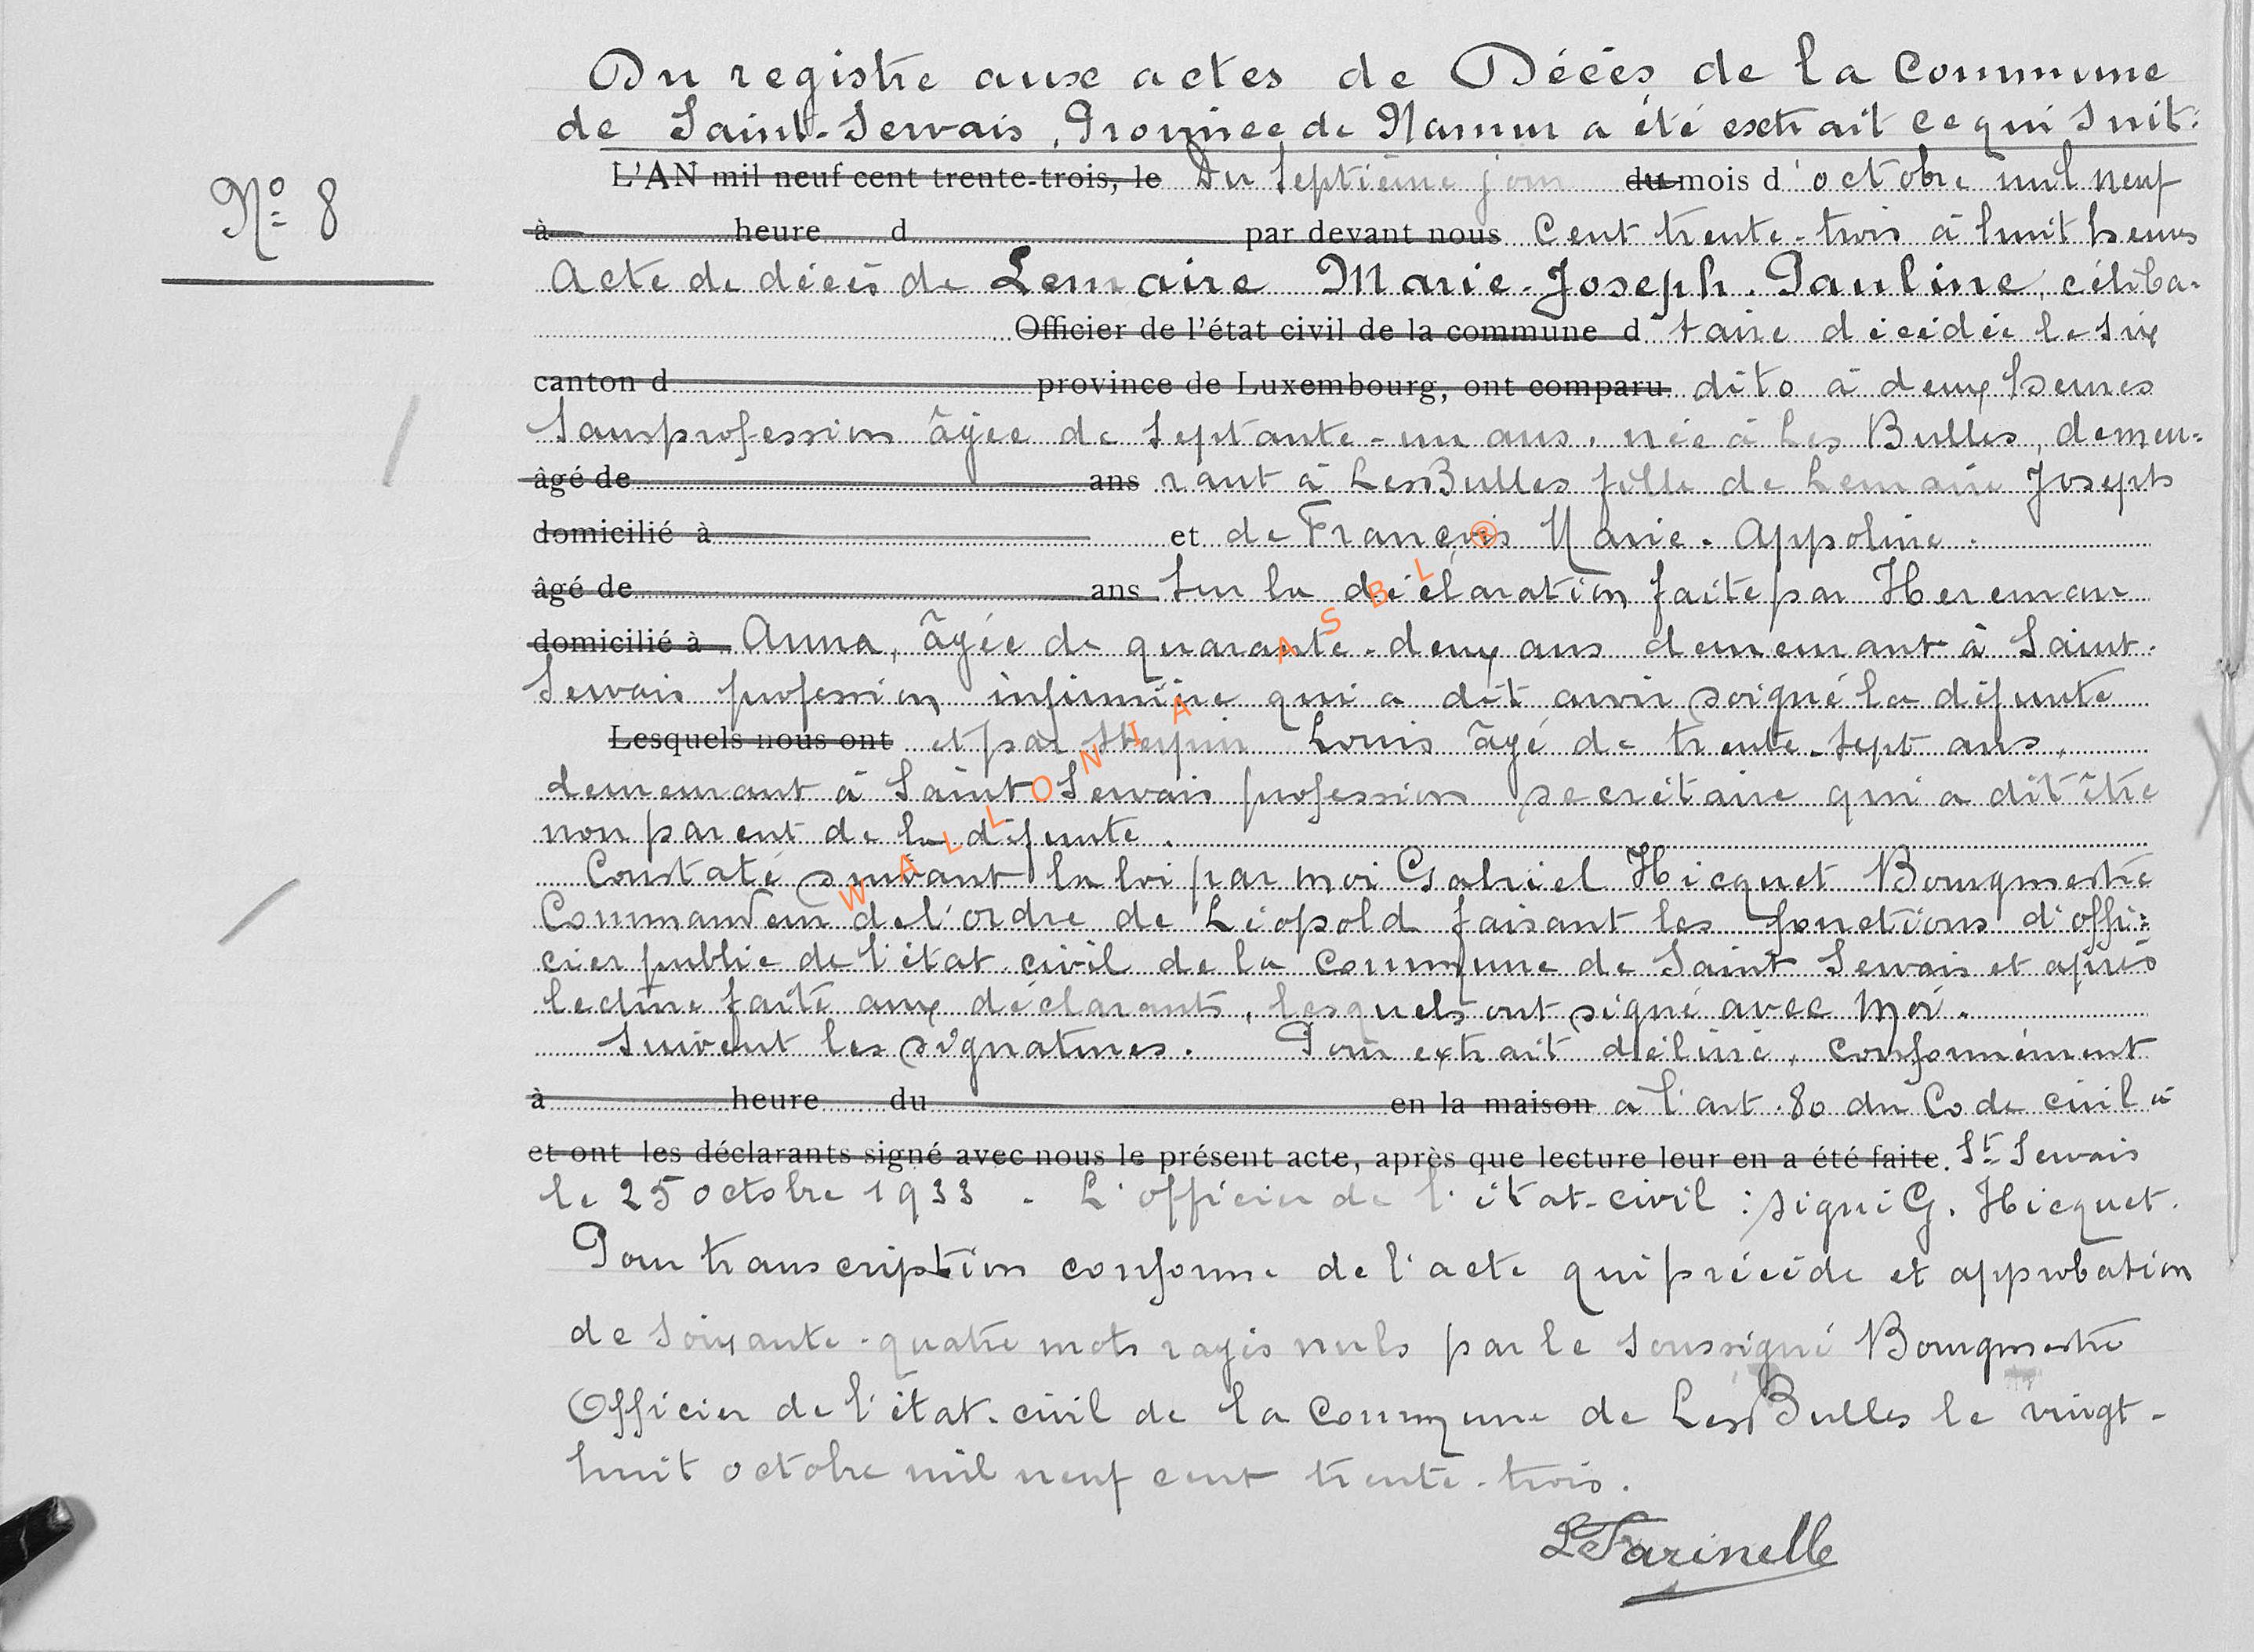 Du registre aux actes de Décès de la Commune
de Saint-Servais, Province de Namur a été extrait ce qui suit:
N° 8
L'AN mil neuf cent trente-trois, le Du septième jour du mois d'octobre mil neuf
à heure d par devant nous cent trente-trois à huit heures
Acte de décès de Lemaire Marie-Joseph-Pauline, céliba-
Officier de l'état civil de la commune d taire décédée le six
canton d province de Luxembourg, ont comparu dito à deux heures
sans profession âgée de septante-un ans, née à Les Bulles, demeu-
âgé de ans rant à Les Bulles fille de Lemaire Joseph
domicilié à et de François Marie-Appoline.
âgé de ans Sur la déclaration faite par Hereman
domicilié à Anna, âgée de quarante-deux ans demeurant à Saint-
Servais profession infirmière qui a dit avoir soigné la défunte
Lesquels nous ont et par Louis âgé de trente-sept ans,
demeurant à Saint Servais profession secrétaire qui a dit être
non parent de la défunte.
Constaté suivant la loi par moi Gabriel Hicquet Bourgmestre
Commandeur de l'ordre de Léopold faisant les fonctions d'offi-
cier public de l'état civil de la commune de Saint Servais et après
lecture faite aux déclarants, lesquels ont signé avec moi.
Suivent les signatures. Pour extrait délivré, conformément
à heure du en la maison à l'art. 80 du Code civil à
et ont les déclarants signé avec nous le présent acte, après que lecture leur en a été faite. St Servais
le 25 octobre 1933. L'officier de l'état-civil: signé G. Hicquet.
Pour transcription conforme de l'acte qui précède et approbation
de soixante-quatre mots rayés nuls par le soussigné Bourgmestre
Officier de l'état-civil de la commune de Les Bulles le vingt-
huit octobre mil neuf cent trente-trois.
L Farinelle
WALLONIA ASBL ®